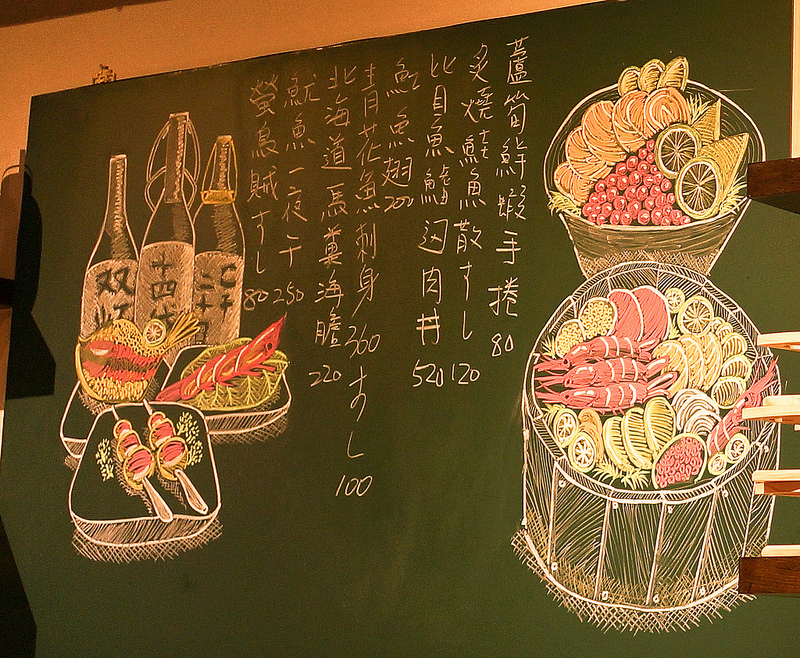 蘆筍鮮蝦手捲 80
炙燒鮭魚散すし 120
比目魚鰭肉丼 520
魟魚翅 200
青花魚刺身 360 すし 100
北海道馬糞海膽 220
魷魚一夜干 250
螢烏賊すし 80
双虹
十四代
二十